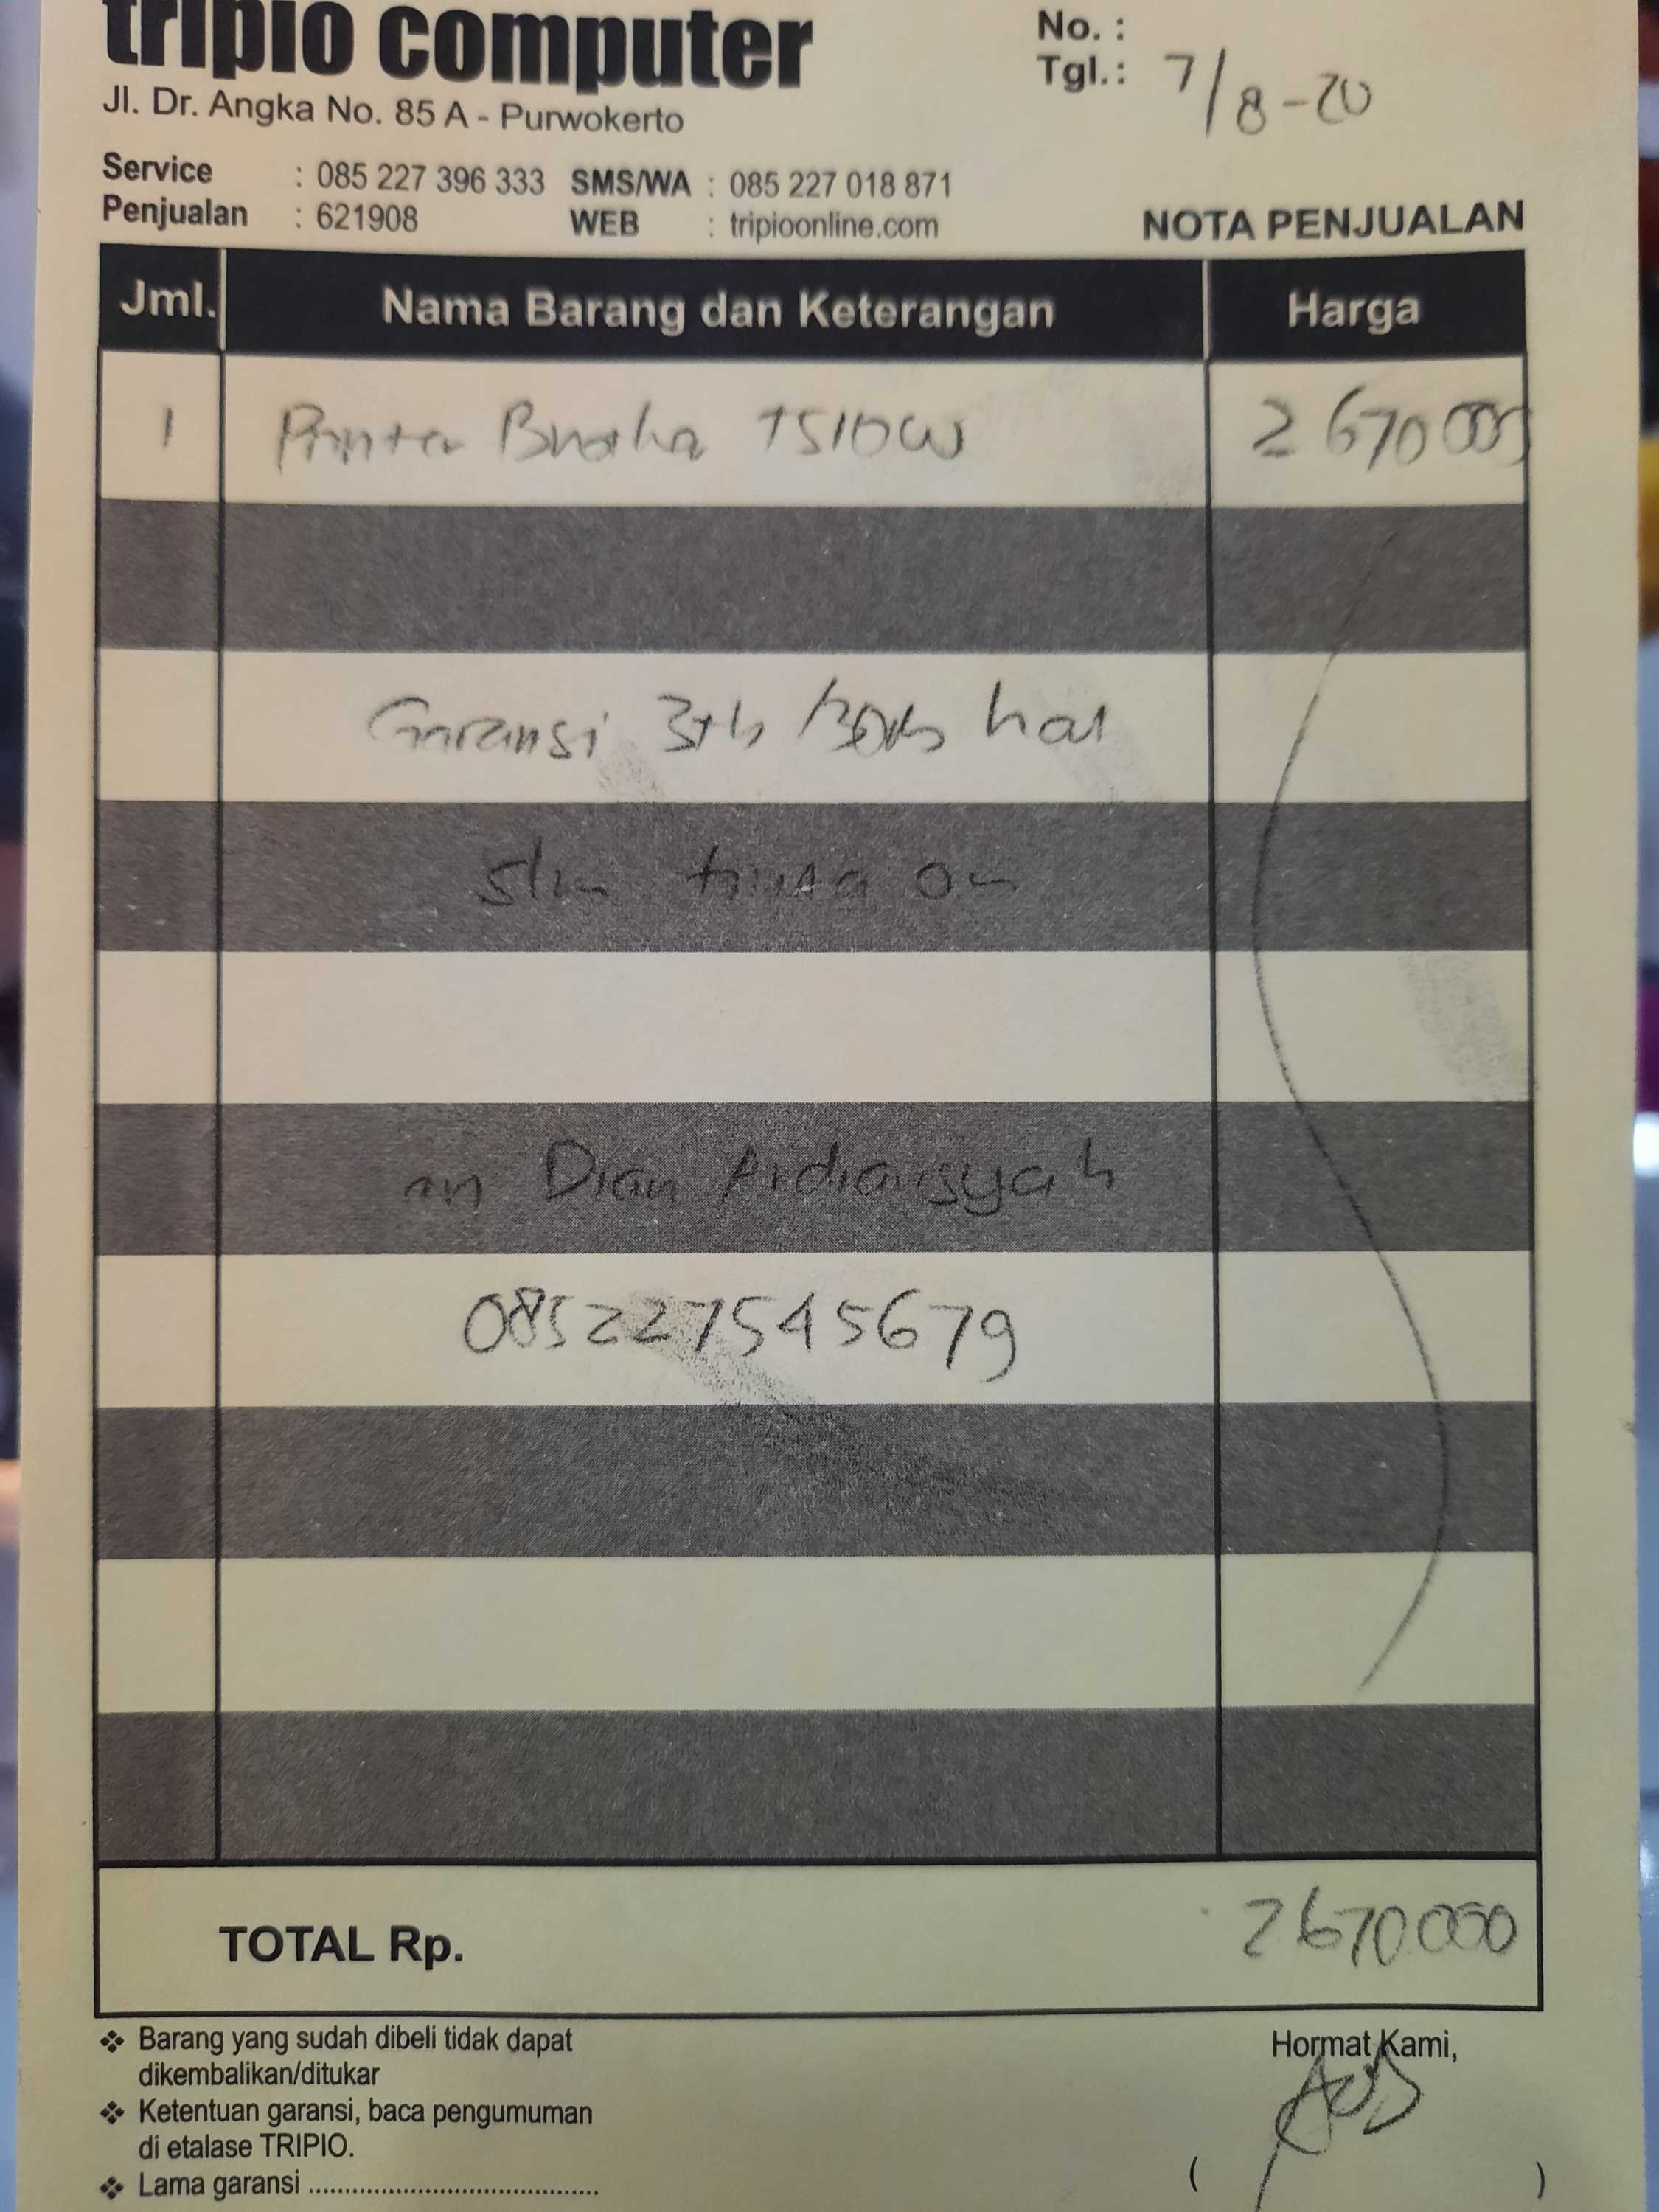 tripio computer
Jl. Dr. Angka No. 85 A - Purwokerto
No. :
Tgl. : 7/8-20
Service : 085 227 396 333 SMS/WA : 085 227 018 871
Penjualan : 621908 WEB : tripioonline.com
NOTA PENJUALAN
Jml. Nama Barang dan Keterangan Harga
1 Printer T510W 2670000
Garansi 3th
an Dian Ardiansyah
085227545679
TOTAL Rp. 2670.000
❖ Barang yang sudah dibeli tidak dapat
dikembalikan/ditukar
❖ Ketentuan garansi, baca pengumuman
di etalase TRIPIO.
❖ Lama garansi ..........................................
Hormat Kami,
( )